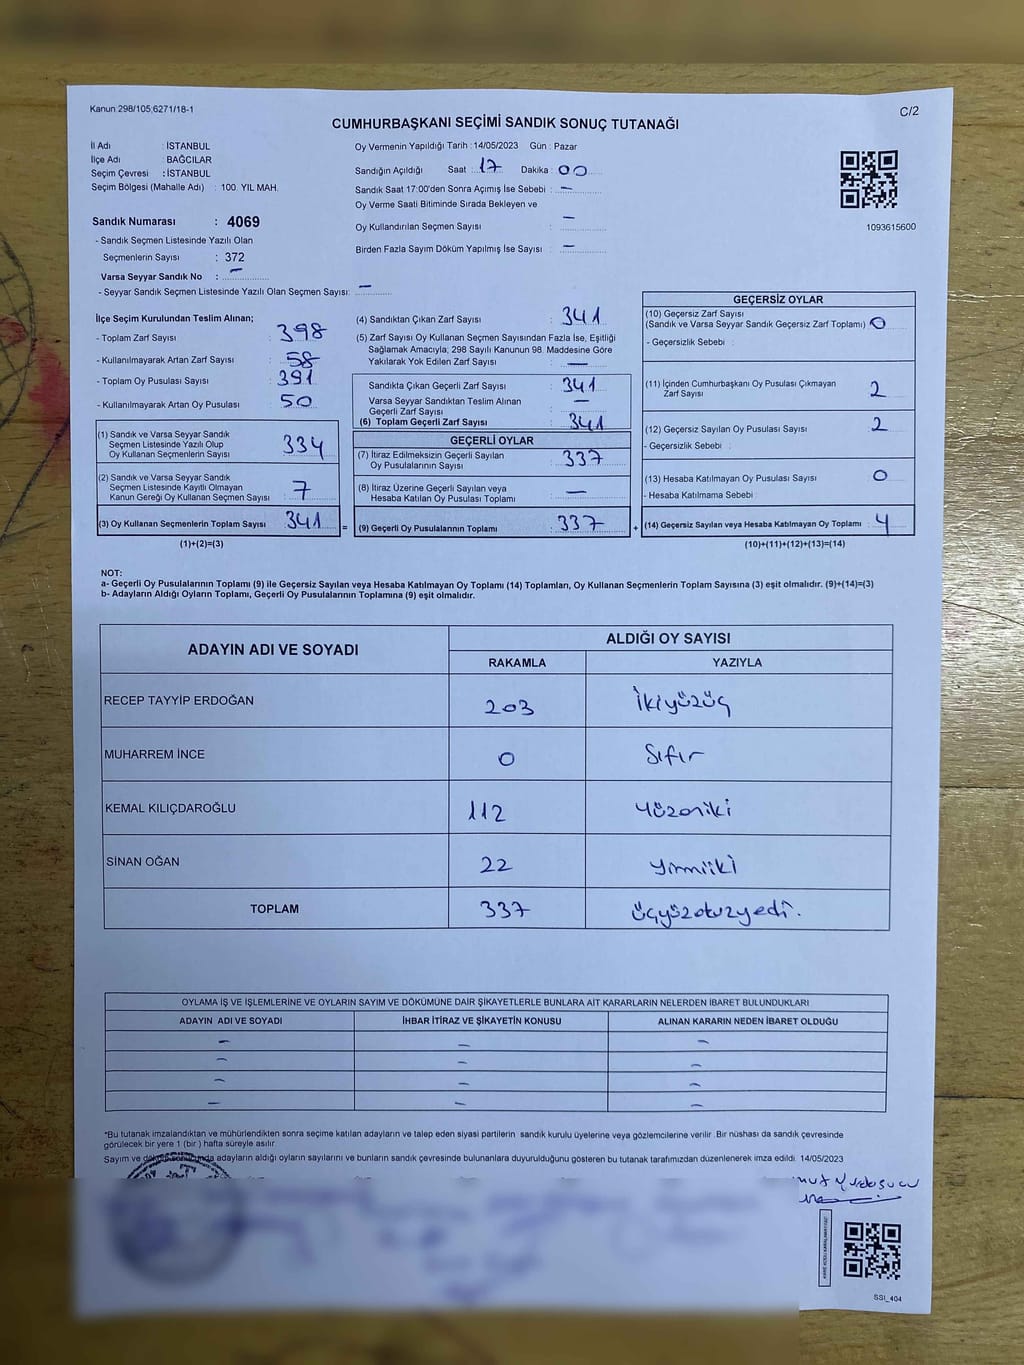 Kanun 298/105;6271/18-1
C/2
CUMHURBAŞKANI SEÇİMİ SANDIK SONUÇ TUTANAĞI
İl Adı : İSTANBUL
İlçe Adı : BAĞCILAR
Seçim Çevresi : İSTANBUL
Seçim Bölgesi (Mahalle Adı) : 100. YIL MAH.
Sandık Numarası : 4069
- Sandık Seçmen Listesinde Yazılı Olan
Seçmenlerin Sayısı : 372
Varsa Seyyar Sandık No : –
- Seyyar Sandık Seçmen Listesinde Yazılı Olan Seçmen Sayısı: –
Oy Vermenin Yapıldığı Tarih : 14/05/2023 Gün : Pazar
Sandığın Açıldığı Saat : 17 Dakika : 00
Sandık Saat 17:00'den Sonra Açımış İse Sebebi : –
Oy Verme Saati Bitiminde Sırada Bekleyen ve
Oy Kullandırılan Seçmen Sayısı : –
Birden Fazla Sayım Döküm Yapılmış İse Sayısı : –
1093615600
İlçe Seçim Kurulundan Teslim Alınan;
- Toplam Zarf Sayısı : 398
- Kullanılmayarak Artan Zarf Sayısı : 58
- Toplam Oy Pusulası Sayısı : 391
- Kullanılmayarak Artan Oy Pusulası : 50
(1) Sandık ve Varsa Seyyar Sandık
Seçmen Listesinde Yazılı Olup
Oy Kullanan Seçmenlerin Sayısı : 334
(2) Sandık ve Varsa Seyyar Sandık
Seçmen Listesinde Kayıtlı Olmayan
Kanun Gereği Oy Kullanan Seçmen Sayısı : 7
(3) Oy Kullanan Seçmenlerin Toplam Sayısı : 341
(1)+(2)=(3)
(4) Sandıktan Çıkan Zarf Sayısı : 341
(5) Zarf Sayısı Oy Kullanan Seçmen Sayısından Fazla İse, Eşitliği
Sağlamak Amacıyla; 298 Sayılı Kanunun 98. Maddesine Göre
Yakılarak Yok Edilen Zarf Sayısı : –
Sandıkta Çıkan Geçerli Zarf Sayısı : 341
Varsa Seyyar Sandıktan Teslim Alınan
Geçerli Zarf Sayısı : –
(6) Toplam Geçerli Zarf Sayısı : 341
GEÇERLİ OYLAR
(7) İtiraz Edilmeksizin Geçerli Sayılan
Oy Pusulalarının Sayısı : 337
(8) İtiraz Üzerine Geçerli Sayılan veya
Hesaba Katılan Oy Pusulası Toplamı : –
= (9) Geçerli Oy Pusulalarının Toplamı : 337
GEÇERSİZ OYLAR
(10) Geçersiz Zarf Sayısı
(Sandık ve Varsa Seyyar Sandık Geçersiz Zarf Toplamı) : 0
- Geçersizlik Sebebi :
(11) İçinden Cumhurbaşkanı Oy Pusulası Çıkmayan
Zarf Sayısı : 2
(12) Geçersiz Sayılan Oy Pusulası Sayısı : 2
- Geçersizlik Sebebi :
(13) Hesaba Katılmayan Oy Pusulası Sayısı : 0
- Hesaba Katılmama Sebebi :
+ (14) Geçersiz Sayılan veya Hesaba Katılmayan Oy Toplamı : 4
(10)+(11)+(12)+(13)=(14)
NOT:
a- Geçerli Oy Pusulalarının Toplamı (9) ile Geçersiz Sayılan veya Hesaba Katılmayan Oy Toplamı (14) Toplamları, Oy Kullanan Seçmenlerin Toplam Sayısına (3) eşit olmalıdır. (9)+(14)=(3)
b- Adayların Aldığı Oyların Toplamı, Geçerli Oy Pusulalarının Toplamına (9) eşit olmalıdır.
ADAYIN ADI VE SOYADI
ALDIĞI OY SAYISI
RAKAMLA YAZIYLA
RECEP TAYYİP ERDOĞAN 203 İkiyüzüç
MUHARREM İNCE 0 Sıfır
KEMAL KILIÇDAROĞLU 112 Yüzoniki
SİNAN OĞAN 22 yirmiiki
TOPLAM 337 üçyüzotuzyedi.
OYLAMA İŞ VE İŞLEMLERİNE VE OYLARIN SAYIM VE DÖKÜMÜNE DAİR ŞİKAYETLERLE BUNLARA AİT KARARLARIN NELERDEN İBARET BULUNDUKLARI
ADAYIN ADI VE SOYADI İHBAR İTİRAZ VE ŞİKAYETİN KONUSU ALINAN KARARIN NEDEN İBARET OLDUĞU
– – –
– – –
– – –
– – –
*Bu tutanak imzalandıktan ve mühürlendikten sonra seçime katılan adayların ve talep eden siyasi partilerin sandık kurulu üyelerine veya gözlemcilerine verilir. Bir nüshası da sandık çevresinde
görülecek bir yere 1 (bir ) hafta süreyle asılır.
Sayım ve döküm sonunda adayların aldığı oyların sayılarını ve bunların sandık çevresinde bulunanlara duyurulduğunu gösteren bu tutanak tarafımızdan düzenlenerek imza edildi. 14/05/2023
SSI_404